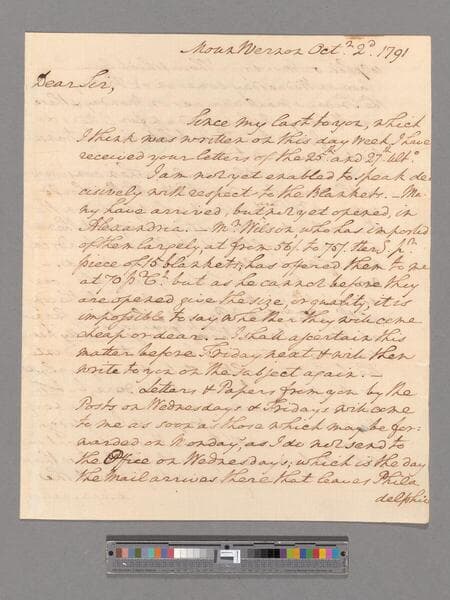 Mount Vernon Octr. 2d. 1791
Dear Sir,
Since my last to you, which
I think was written on this day week, I have
received your letters of the 25th and 27th ulto.
I am not yet enabled to speak de
cisively with respect to the Blankets. – Ma-
ny have arrived, but not yet opened, in
Alexandria. – Mr Wilson who has imported
of them largely, at from 56/. to 75/. pr.
piece of 15 blankets, has offered them to me
at 70 pr Ct. but as he cannot before they
are opened, give the size, or quality, it is
impossible to say whether they will come
cheap or dear. – I shall ascertain this
matter before Friday next & will then
write to you on the subject again. –
Letters & Papers from you by the
Posts on Wednesdays & Fridays will come
to me as soon as those which may be for-
warded on Monday, as I do not send to
the Office on Wednesdays; which is the day
the Mail arrives there that leaves Phila
delphia